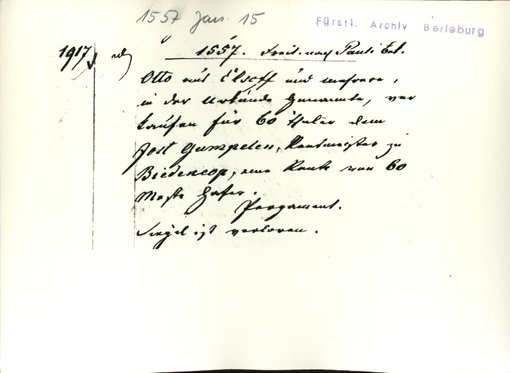 1557 Jan. 15
Fürstl. Archiv Berleburg
1917
1557. Freit. nach Pauli Ert.
Otto aus Elsoff und mehrere,
in der Urkunde Genannte, ver
kaufen für 60 Thaler dem
Jost Gumpelen, Rentmeister zu
Biedencop, eine Rente von 60
Meste Hafer.
Pergament.
Siegel ist verloren.